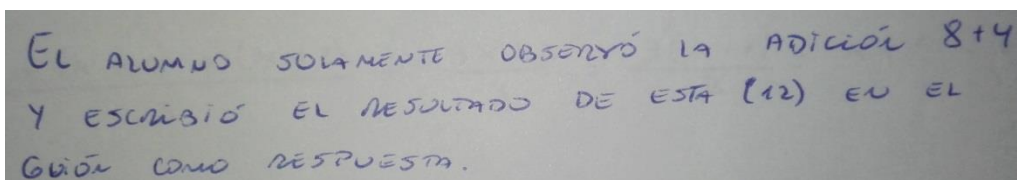 EL ALUMNO SOLAMENTE OBSERVÓ LA ADICIÓN 8+4
Y ESCRIBIÓ EL RESULTADO DE ESTA (12) EN EL
GUIÓN COMO RESPUESTA.